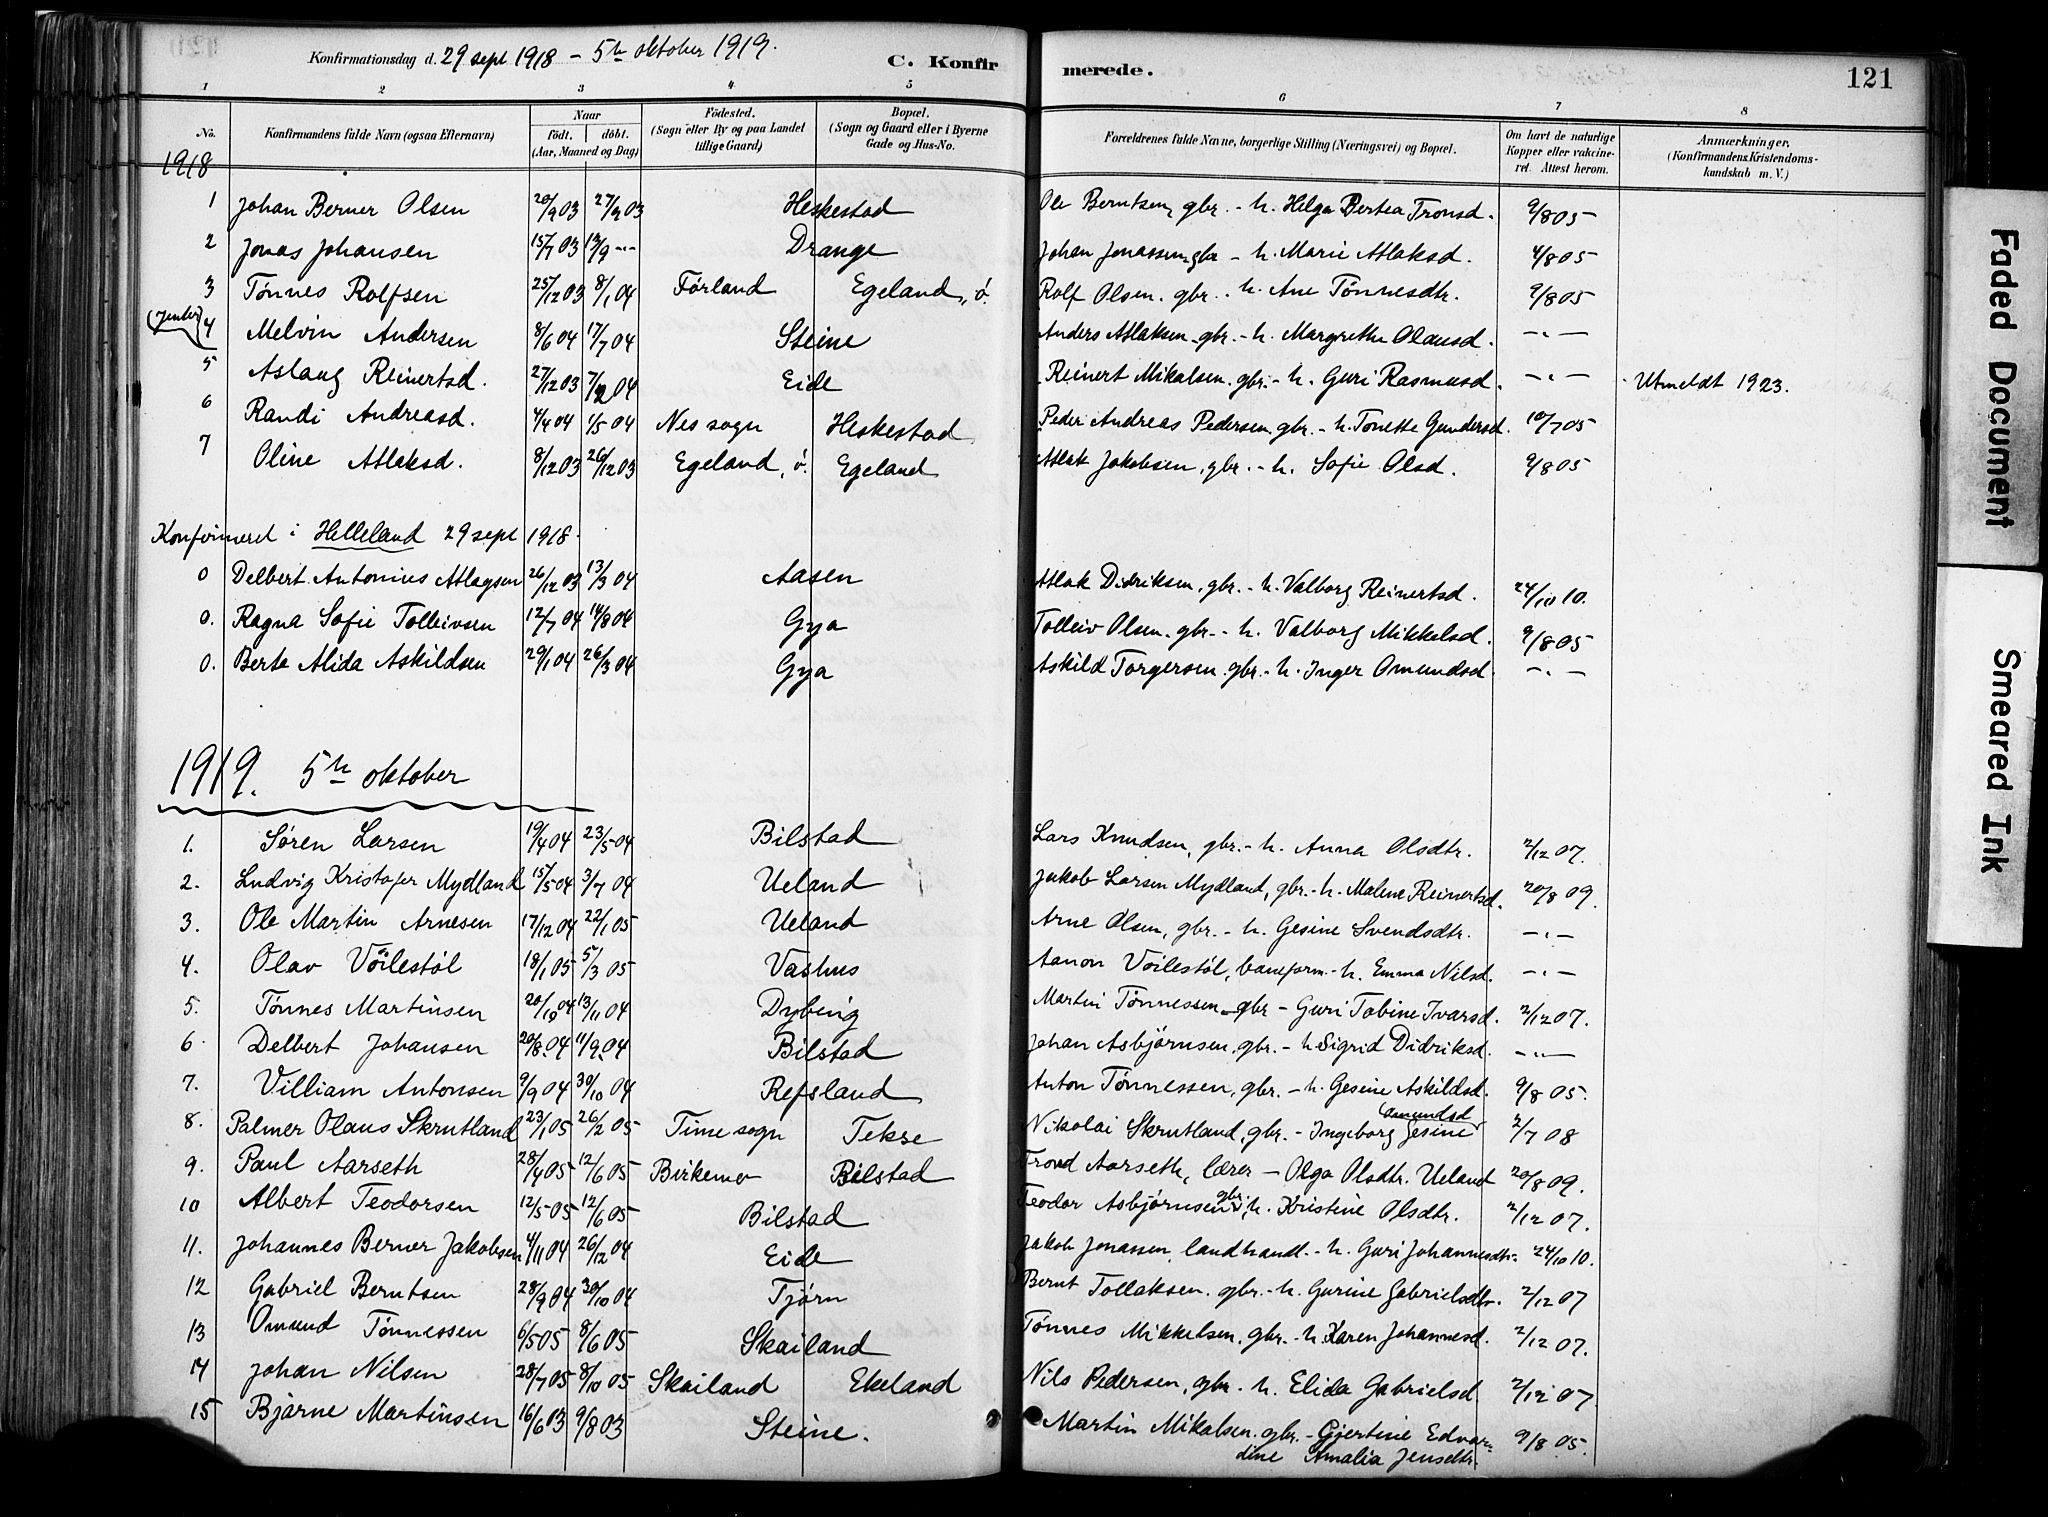 Konfirmationsdag d. 29 sept 1918 – 5te oktober 1919.
C. Konfirmerede.
121
1 2 3 4 5 6 7 8
No. Konfirmandens fulde Navn (ogsaa Efternavn) Naar født. døbt. (Aar, Maaned og Dag) Fødested. (Sogn eller By og paa Landet tillige Gaard) Bopæl. (Sogn og Gaard eller i Byerne Gade og Hus-No. Forældrenes fulde Navne, borgerlige Stilling (Næringsvei) og Bopæl. Om havt de naturlige Kopper eller vakcineret. Attest herom. Anmærkninger. (Konfirmandens Kristendomskundskab m. V.)
1918
1 Johan Berner Olsen 20/9 03 27/9 03 Heskestad Ole Berntsen, gbr. - h. Helga Bertea Tronsd. 9/8 05
2 Jonas Johansen 15/7 03 13/9 -"- Drange Johan Jonassen gbr - h. Marie Atlaksd. 4/8 05
3 Tønnes Rolfsen 25/12 03 8/1 04 Førland Egeland, ø. Rolf Olsen. gbr. - h. Ane Tønnesdtr. 9/8 05
4 Melvin Andersen 8/6 04 17/7 04 Steine Anders Atlaksen. gbr. - h. Margrethe Olausd. -"-
5 Aslaug Reinertsd. 27/12 03 7/2 04 Eide Reinert Mikalsen. gbr. - h. Guri Rasmusd. -"- Utmeldt 1923.
6 Randi Andreasd. 4/4 04 1/5 04 Nes sogn Heskestad Peder Andreas Pedersen. gbr. - h. Tonette Gundersd. 10/7 05
7 Oline Atlaksd. 8/12 03 26/12 03 Egeland, ø. Egeland Atlak Jakobsen, gbr. - h. Sofie Olsd. 9/8 05
Konfirmeret i Helleland 29 sept 1918.
0 Delbert Antonius Atlagsen 26/12 03 13/3 04 Aasen Atlak Didriksen, gbr. - h. Valborg Reinertsd. 24/10 10.
0. Ragna Sofie Tolleivsen 12/7 04 14/8 04 Gya Tolleiv Olsen. gbr. - h. Valborg Mikkelsd. 9/8 05
0. Berte Alida Askildsen 29/1 04 26/3 04 Gya Askild Torgersen. gbr. - h. Inger Omundsd. -"-
1919. 5te oktober
1. Søren Larsen 19/4 04 23/5 04 Bilstad Lars Knudsen, gbr. - h. Anna Olsdtr. 2/12 07.
2. Ludvig Kristofer Mydland 15/5 04 3/7 04 Ueland Jakob Larsen Mydland, gbr. - h. Malene Reinertsd. 20/8 09.
3. Ole Martin Arnesen 17/12 04 22/1 05 Ueland Arne Olsen, gbr. - h. Gesine Svendsdtr. -"-
4. Olav Vöilestöl 18/1 05 5/3 05 Vashus Aanon Voilestøl, baneform. - h. Emma Nilsd. -"-
5. Tønnes Martinsen 20/10 04 13/11 04 Dybing Martin Tønnessen. gbr - Guri Tobine Ivarsd. 2/12 07.
6. Delbert Johansen 20/8 04 11/9 04 Bilstad Johan Asbjørnsen. gbr. - h Sigrid Didriksd. -"-
7. Villiam Antonsen 9/9 04 30/10 04 Refsland Anton Tønnessen, gbr. - h. Gesine Askildsd. 9/8 05.
8. Palmer Olaus Skrutland 23/1 05 26/2 05 Time sogn Tekse Nikolai Skrutland, gbr. - Ingeborg Gesine Omundsd 2/7 08
9. Paul Aarseth 28/4 05 12/6 05 Birkemo Bilstad Trond Aarseth, lærer - Olga Olsdtr. Ueland 20/8 09.
10 Albert Teodorsen 12/5 05 12/6 05 Bilstad Teodor Asbjørnsen gbr. h. Kristine Olsdtr. 2/12 07.
11. Johannes Berner Jakobsen 4/11 04 26/12 04 Eide Jakob Jonassen, landhandl. - h. Guri Johannesdtr. 24/10 10.
12 Gabriel Berntsen 28/9 04 30/10 04 Tjørn Bernt Tollaksen. gbr. - h. Gurine Gabrielsdtr. 2/12 07
13 Omund Tønnessen 6/5 05 8/6 05 Skailand Tønnes Mikkelsen, gbr. - h. Karen Johannesd. 2/12 07.
14 Johan Nilsen 28/7 05 8/10 05 Skailand Ekeland Nils Pedersen, gbr. h. Elida Gabrielsd. 2/12 07
15 Bjarne Martinsen 16/6 03 9/8 03 Steine. Martin Mikalsen. gbr. - Gjertine Edvardine Amalia Jensdtr. 9/8 05.
Faded Document
Smeared Ink